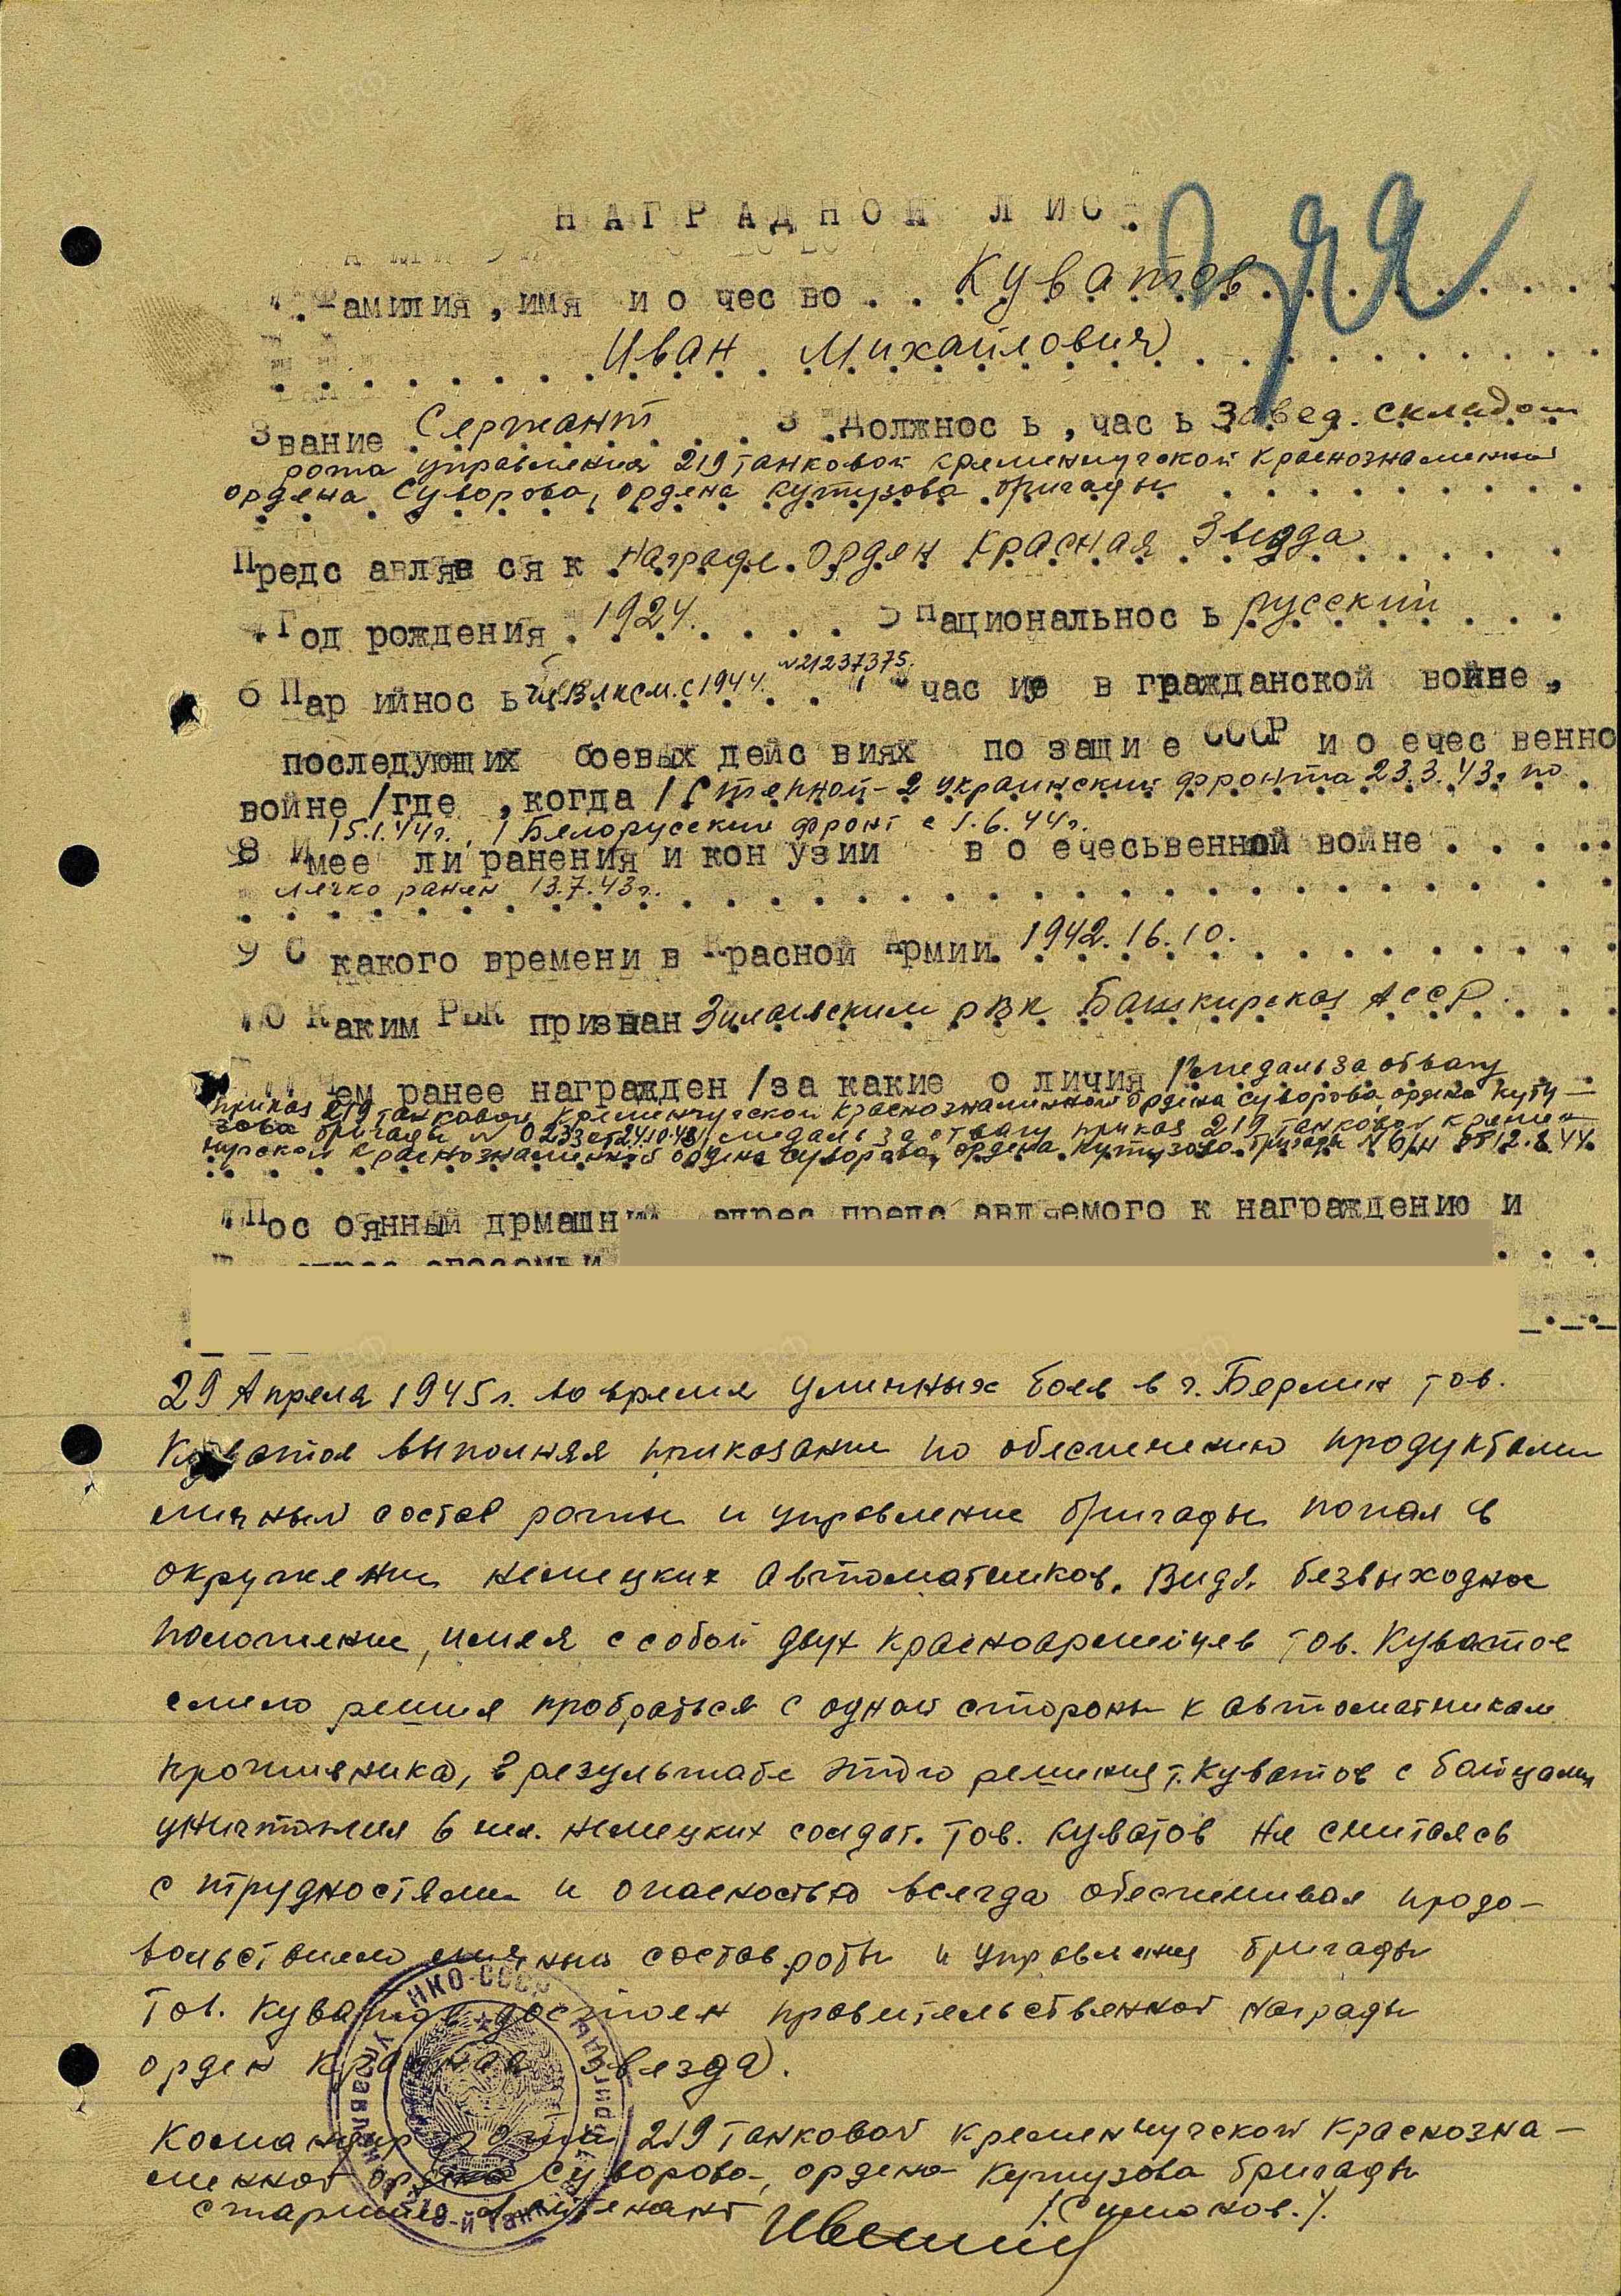 НАГРАДНОЙ ЛИС.
Фамилия, имя и о чес во . . Куватов
Иван Михайлович
Звание Сержант 3 Должнос ь, час ь Завед. складом
рота управления 219 танковой Кременчугской Краснознаменной
ордена Суворова, ордена Кутузова бригады
Предс авляе ся к награде Орден Красная Звезда
4 Год рождения 1924. 5 Национальнос ь русский
6 Пар ийнос ь чл. Влксм. с 1944. №21237375. час ие в гражданской войне,
последующих боевых дейс виях по защи е СССР и о ечес венно
войне /где , когда / Степной-2 Украинский фронта 23.3.43г. по
15.1.44г., 1 Белорусский фронт с 1.6.44г.
8 Имее ли ранения и кон узии в о ечесьвенной войне . . . . .
легко ранен 13.7.43г.
9 С какого времени в Красной Армии 1942. 16. 10.
10 Каким РВК призван Зилаирским рвк Башкирская АССР.
Чем ранее награжден /за какие о личия медаль за отвагу
приказ 219 танковой Кременчугской Краснознаменной ордена Суворова, ордена Куту-
зова бригады № 0233 от 24.10.43, медаль за отвагу приказ 219 танковой Кремен
чугской Краснознаменной ордена Суворова, ордена Кутузова бригады № 0/н от 12.8.44.
Пос оянный дрмашний адрес предс авляемого к награждению и
адрес егосемьи
29 Апреля 1945г. во время уличных боев в г. Берлин тов.
Куватов выполняя приказание по обеспечению продуктами
личный состав роты и управление бригады попал в
окружение немецких автоматчиков. Видя безвыходное
положение, имея с собой двух красноармейцев тов. Куватов
смело решил пробраться с одной стороны к автоматчикам
противника, в результате этого решения т. Куватов с бойцами
уничтожил 6 чел. немецких солдат. Тов. Куватов не считаясь
с трудностями и опасностью всегда обеспечивал продо-
вольствием личный состав роты и управления бригады
Тов. Куватов достоин правительственной награды
орден Красная Звезда.
НКО-СССР
Командир роты 219 танковой Кременчугской Краснозна-
менной ордена Суворова, ордена Кутузова бригады
старший лейтенант /Симонов./